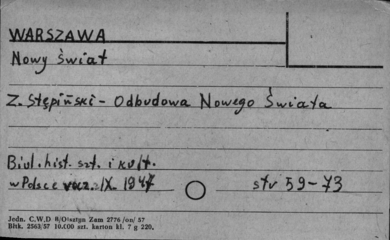 WARSZAWA
Nowy Świat
Z. Stępiński - Odbudowa Nowego Świata
Biul. hist. szt. i kult.
w Polsce rocz. IX. 1947 str 59-73
Jedn. C.W.D 8/Olsztyn Zam 2776 /on/ 57
Błtk. 2563/57 10.000 szt. karton kl. 7 g 220.